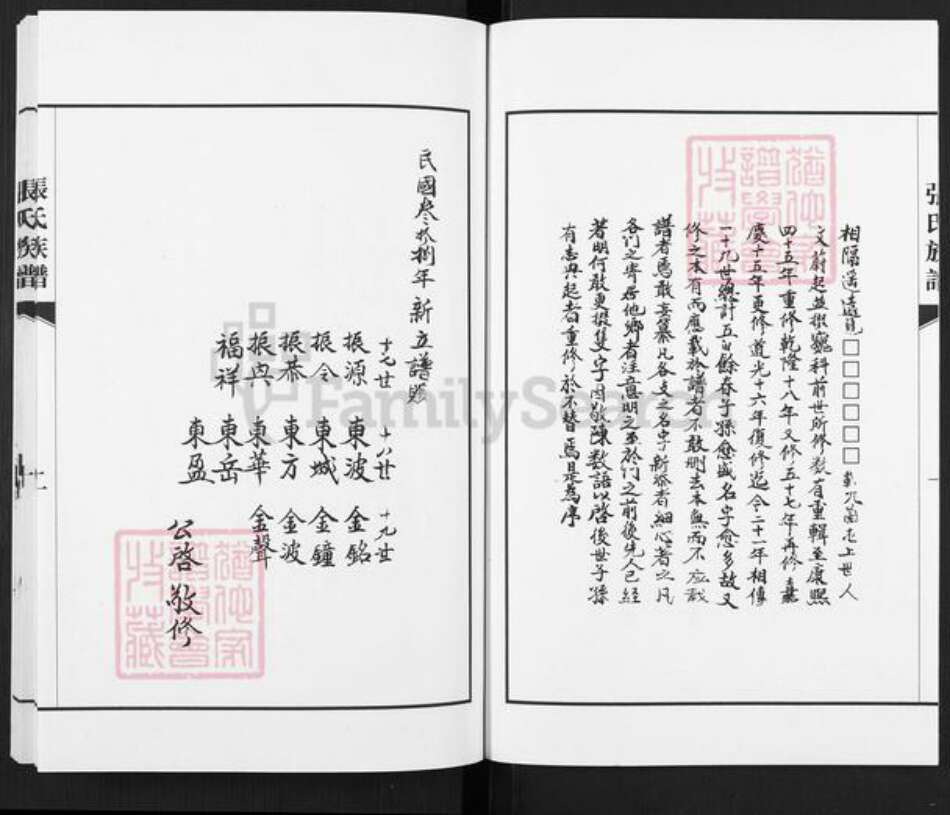 張氏族譜
相隔遥遠見□□□□□□載九菌走上世人
文蔚起並掇巍科前世所修数有重輯至康熙
四十五年重修乾隆十八年又修五十七年再修嘉
慶十五年更修道光十六年復修迄今二十一年相傳
一十九世總計五百餘春子孫愈盛名字愈多故又
修之本有而應載於譜者不敢刪去本無而不應載
譜者焉敢妄纂凡各支之名字新添者細心者之凡
各门之寄居他鄉者注意明之至於门之前後先人已經
著明何敢更撰集字因敬陳数語以啓後世子孫
有志興起者重修於不替焉是為序
民國叁拾捌年新立譜
十七廿 十八廿 十九廿
振源 東波 金銘
振令 東城 金鐘
振恭 東方 金波
振典 東華 金聲
福祥 東岳
東盈
公啓 敬修
張氏族譜
十一
猶他家譜學會收藏
猶他家譜學會收藏
FamilySearch